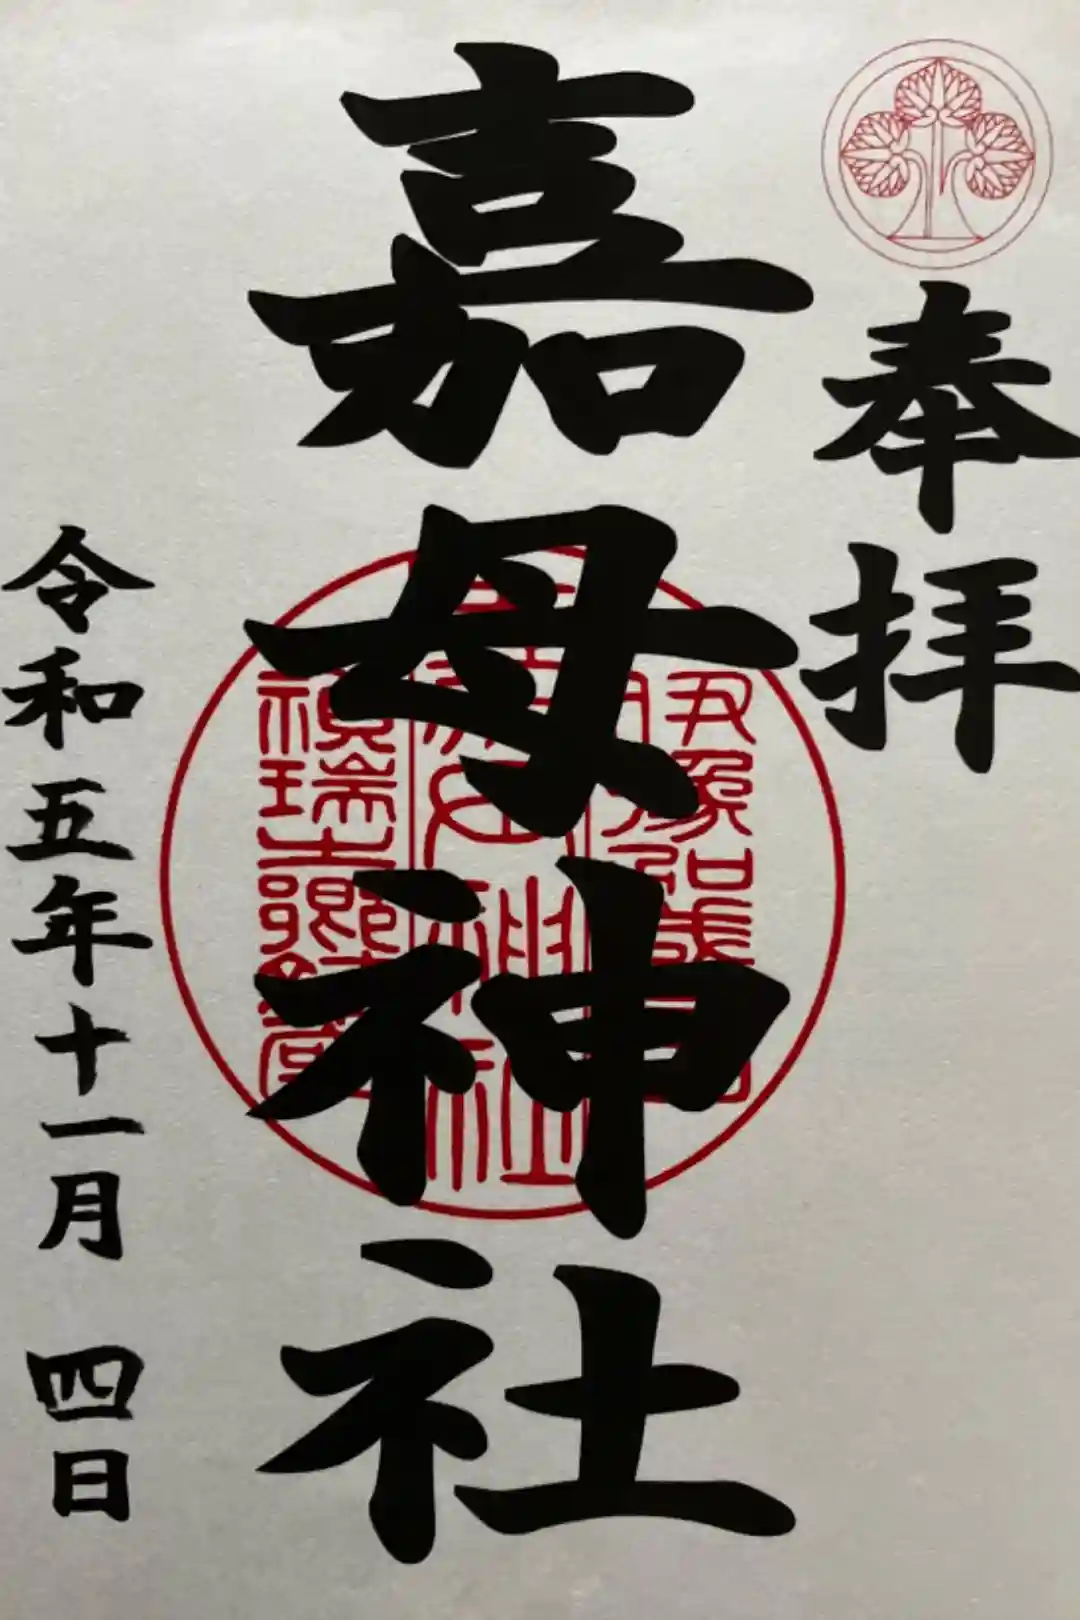 奉拝
嘉母神社
令和五年十一月 四日